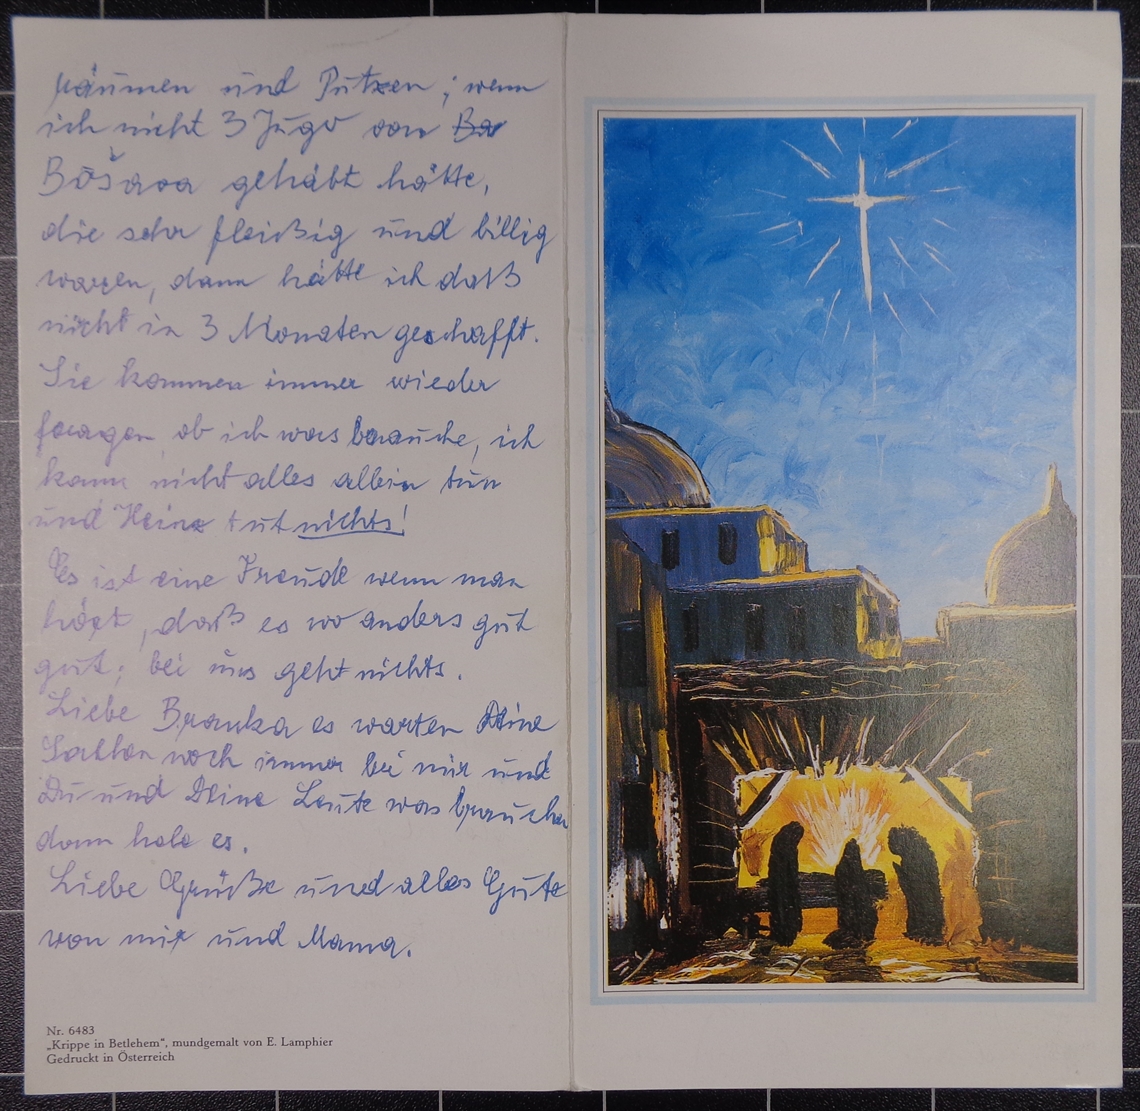 räumen und Putzen; wenn
ich nicht 3 Jugo von Ba
gehabt hätte,
die sehr fleißig und billig
waren, dann hätte ich daß
nicht in 3 Monaten geschafft.
Sie kommen immer wieder
fragen, ob ich was brauche, ich
kann nicht alles allein tun
und Heinz tut nichts!
Es ist eine Freude wenn man
hört, daß es wo anders gut
gut; bei uns geht nichts.
Liebe Branka es warten Deine
Sachen noch immer bei mir und
Du und Deine Leute was brauchen
dann hole es.
Liebe Grüße und alles Gute
von mir und Mama.
Nr. 6483
„Krippe in Betlehem“, mundgemalt von E. Lamphier
Gedruckt in Österreich